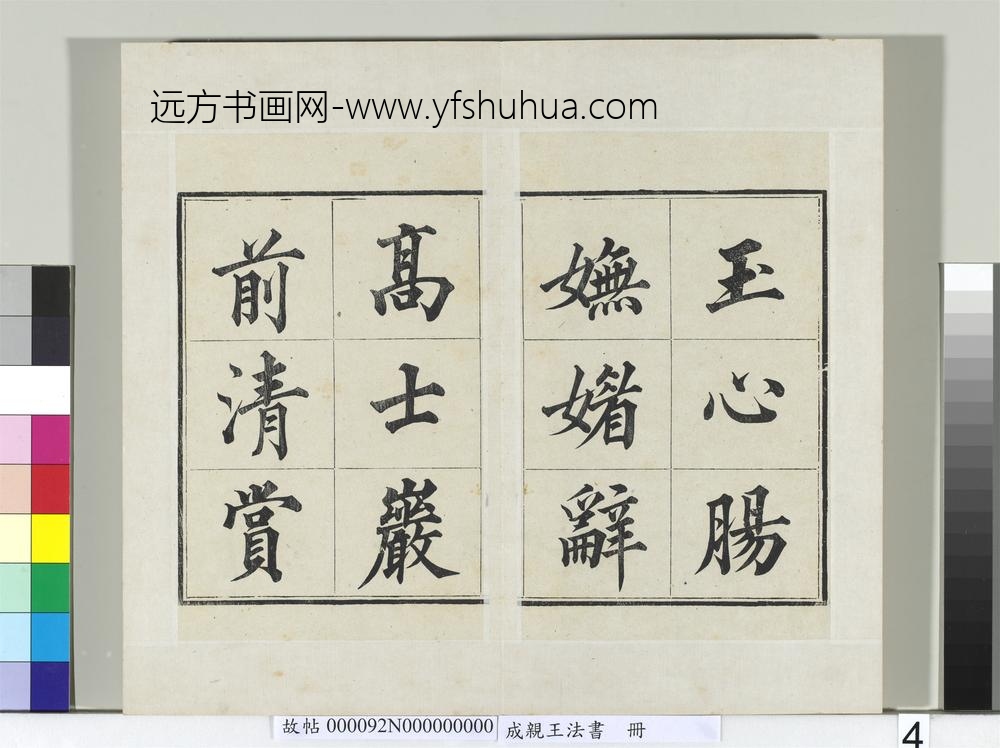 远方书画网-www.yfshuhua.com
玉心腸
嫵媚辭
高士巖
前清賞
故帖 000092N000000000 成親王法書 冊
4